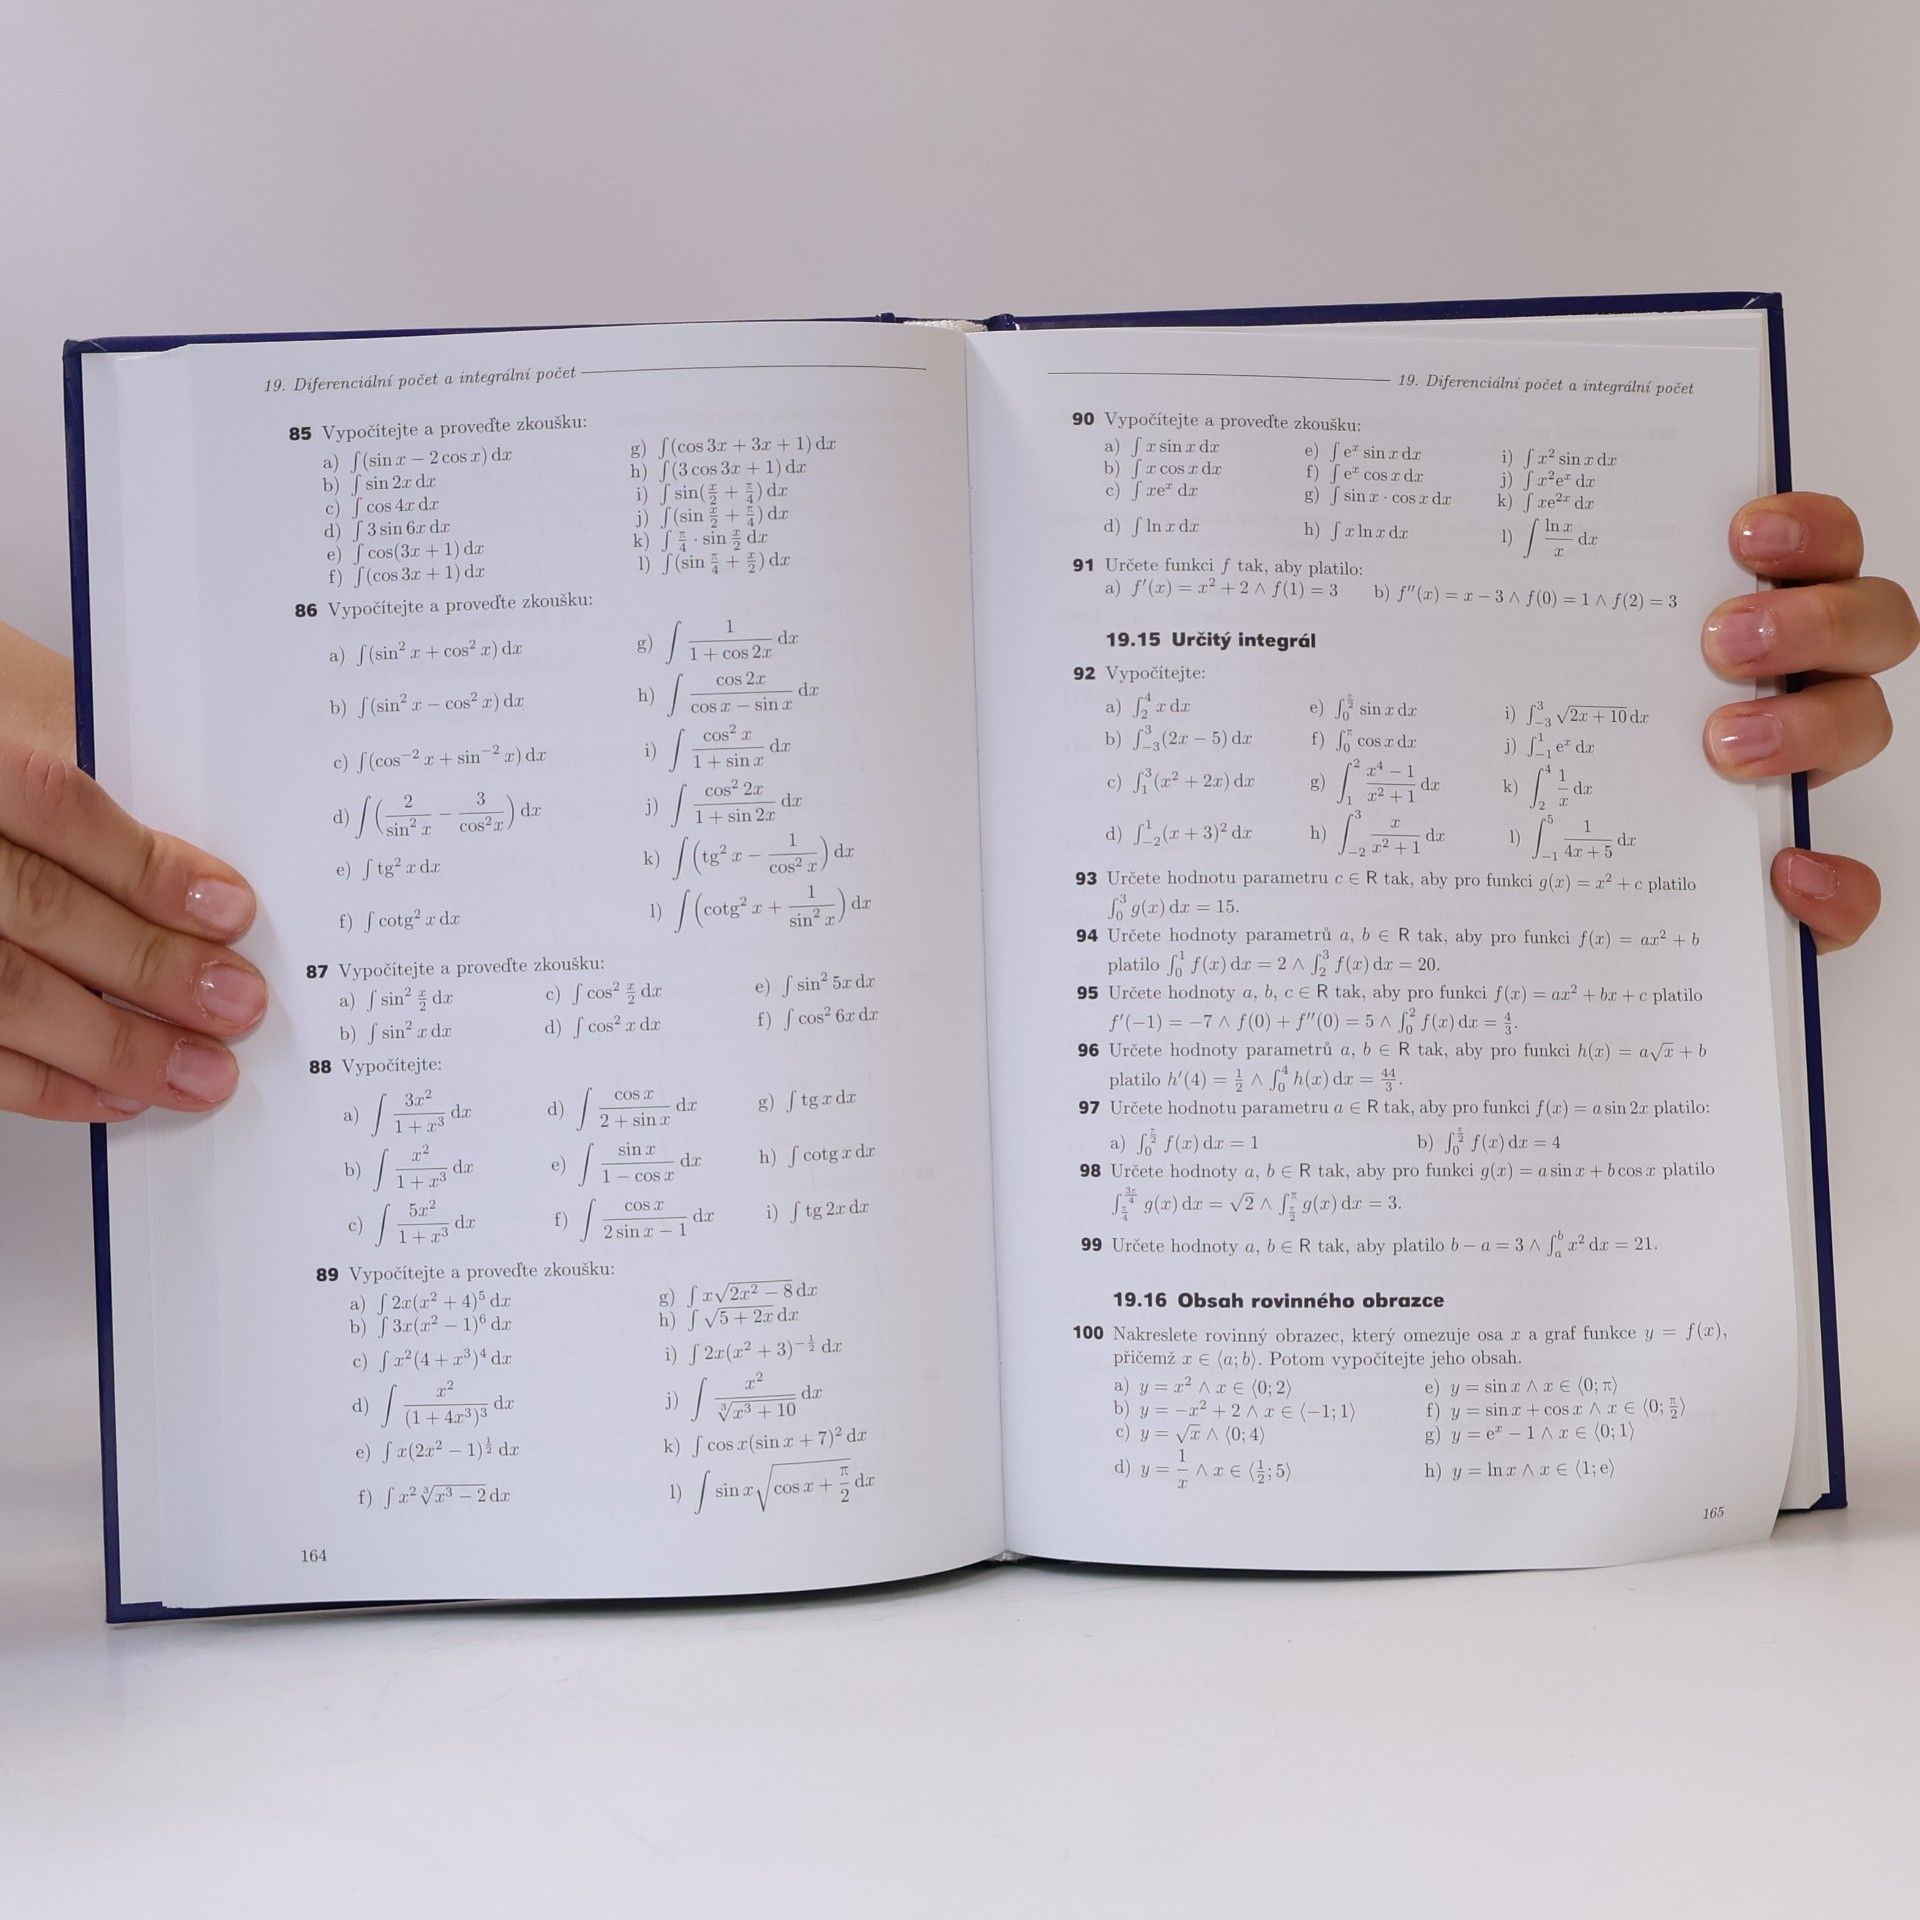 19. Diferenciální počet a integrální počet
85 Vypočítejte a proveďte zkoušku:
a) ∫(sin x − 2 cos x) dx
b) ∫ sin 2x dx
c) ∫ cos 4x dx
d) ∫ 3 sin 6x dx
e) ∫ cos(3x + 1) dx
f) ∫(cos 3x + 1) dx
g) ∫(cos 3x + 3x + 1) dx
h) ∫(3 cos 3x + 1) dx
i) ∫ sin(x/2 + π/4) dx
j) ∫(sin x/2 + π/4) dx
k) ∫ π/4 · sin x/2 dx
l) ∫(sin π/4 + x/2) dx
86 Vypočítejte a proveďte zkoušku:
a) ∫(sin² x + cos² x) dx
b) ∫(sin² x − cos² x) dx
c) ∫(cos⁻² x + sin⁻² x) dx
d) ∫(2/sin² x − 3/cos² x) dx
e) ∫ tg² x dx
f) ∫ cotg² x dx
g) ∫ 1/(1 + cos 2x) dx
h) ∫ cos 2x/(cos x − sin x) dx
i) ∫ cos² x/(1 + sin x) dx
j) ∫ cos² 2x/(1 + sin 2x) dx
k) ∫(tg² x − 1/cos² x) dx
l) ∫(cotg² x + 1/sin² x) dx
87 Vypočítejte a proveďte zkoušku:
a) ∫ sin² x/2 dx
b) ∫ sin² x dx
c) ∫ cos² x/2 dx
d) ∫ cos² x dx
e) ∫ sin² 5x dx
f) ∫ cos² 6x dx
88 Vypočítejte:
a) ∫ 3x²/(1 + x³) dx
b) ∫ x²/(1 + x³) dx
c) ∫ 5x²/(1 + x³) dx
d) ∫ cos x/(2 + sin x) dx
e) ∫ sin x/(1 − cos x) dx
f) ∫ cos x/(2 sin x − 1) dx
g) ∫ tg x dx
h) ∫ cotg x dx
i) ∫ tg 2x dx
89 Vypočítejte a proveďte zkoušku:
a) ∫ 2x(x² + 4)⁵ dx
b) ∫ 3x(x² − 1)⁶ dx
c) ∫ x²(4 + x³)⁴ dx
d) ∫ x²/(1 + 4x³)³ dx
e) ∫ x(2x² − 1)^(1/2) dx
f) ∫ x² ∛(x³ − 2) dx
g) ∫ x√(2x² − 8) dx
h) ∫ √(5 + 2x) dx
i) ∫ 2x(x² + 3)^(−1/2) dx
j) ∫ x²/∛(x³ + 10) dx
k) ∫ cos x(sin x + 7)² dx
l) ∫ sin x √(cos x + π/2) dx
164
19. Diferenciální počet a integrální počet
90 Vypočítejte a proveďte zkoušku:
a) ∫ x sin x dx
b) ∫ x cos x dx
c) ∫ xeˣ dx
d) ∫ ln x dx
e) ∫ eˣ sin x dx
f) ∫ eˣ cos x dx
g) ∫ sin x · cos x dx
h) ∫ x ln x dx
i) ∫ x² sin x dx
j) ∫ x²eˣ dx
k) ∫ xe²ˣ dx
l) ∫ ln x/x dx
91 Určete funkci f tak, aby platilo:
a) f′(x) = x² + 2 ∧ f(1) = 3 b) f″(x) = x − 3 ∧ f(0) = 1 ∧ f(2) = 3
19.15 Určitý integrál
92 Vypočítejte:
a) ∫₂⁴ x dx
b) ∫₋₃³(2x − 5) dx
c) ∫₁³(x² + 2x) dx
d) ∫₋₂¹(x + 3)² dx
e) ∫₀^(π/2) sin x dx
f) ∫₀^π cos x dx
g) ∫₁² (x⁴ − 1)/(x² + 1) dx
h) ∫₋₂³ x/(x² + 1) dx
i) ∫₋₃³ √(2x + 10) dx
j) ∫₋₁¹ eˣ dx
k) ∫₂⁴ 1/x dx
l) ∫₋₁⁵ 1/(4x + 5) dx
93 Určete hodnotu parametru c ∈ R tak, aby pro funkci g(x) = x² + c platilo
∫₀³ g(x) dx = 15.
94 Určete hodnoty parametrů a, b ∈ R tak, aby pro funkci f(x) = ax² + b
platilo ∫₀¹ f(x) dx = 2 ∧ ∫₂³ f(x) dx = 20.
95 Určete hodnoty a, b, c ∈ R tak, aby pro funkci f(x) = ax² + bx + c platilo
f′(−1) = −7 ∧ f(0) + f″(0) = 5 ∧ ∫₀² f(x) dx = 4/3.
96 Určete hodnoty parametrů a, b ∈ R tak, aby pro funkci h(x) = a√x + b
platilo h′(4) = 1/2 ∧ ∫₀⁴ h(x) dx = 44/3.
97 Určete hodnotu parametru a ∈ R tak, aby pro funkci f(x) = a sin 2x platilo:
a) ∫₀^(π/2) f(x) dx = 1 b) ∫₀^(π/2) f(x) dx = 4
98 Určete hodnoty a, b ∈ R tak, aby pro funkci g(x) = a sin x + b cos x platilo
∫_(π/4)^(3π/4) g(x) dx = √2 ∧ ∫_(π/2)^π g(x) dx = 3.
99 Určete hodnoty a, b ∈ R tak, aby platilo b − a = 3 ∧ ∫ₐᵇ x² dx = 21.
19.16 Obsah rovinného obrazce
100 Nakreslete rovinný obrazec, který omezuje osa x a graf funkce y = f(x),
přičemž x ∈ ⟨a; b⟩. Potom vypočítejte jeho obsah.
a) y = x² ∧ x ∈ ⟨0; 2⟩
b) y = −x² + 2 ∧ x ∈ ⟨−1; 1⟩
c) y = √x ∧ ⟨0; 4⟩
d) y = 1/x ∧ x ∈ ⟨1/2; 5⟩
e) y = sin x ∧ x ∈ ⟨0; π⟩
f) y = sin x + cos x ∧ x ∈ ⟨0; π/2⟩
g) y = eˣ − 1 ∧ x ∈ ⟨0; 1⟩
h) y = ln x ∧ x ∈ ⟨1; e⟩
165